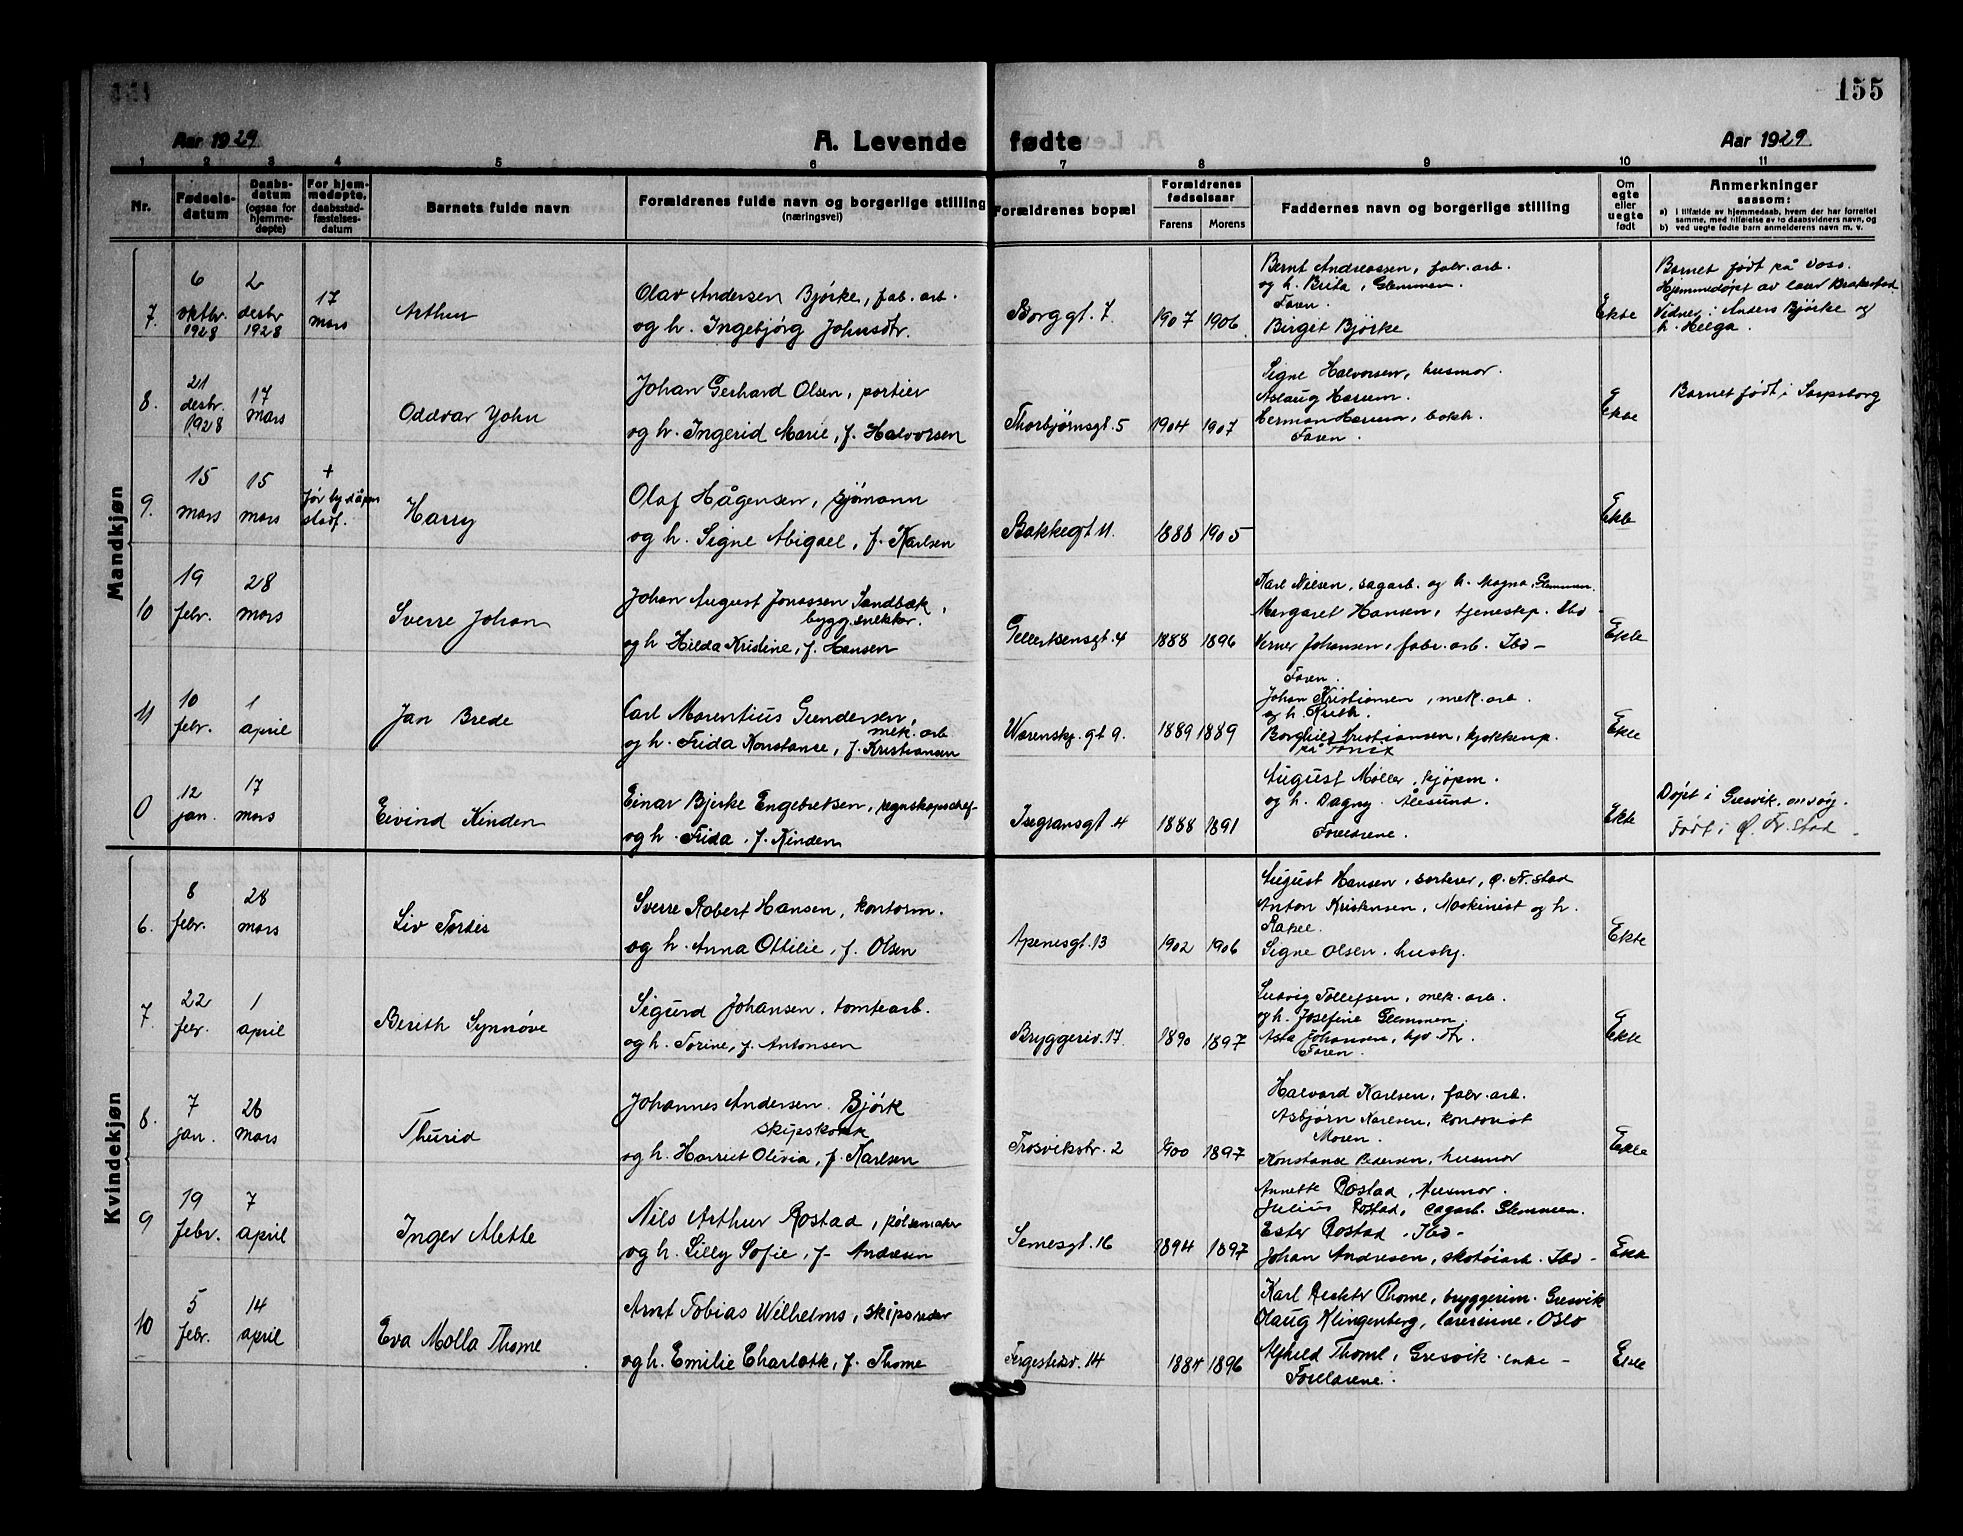 155
Aar 1929 A. Levende fødte Aar 1929
1 2 3 4 5 6 7 8 9 10 11
Nr. Fødsels-datum Daabs-datum (ogsaa for hjemme-døpte) For hjem-medøpte, daabsstad-fæstelses-datum Barnets fulde navn Forældrenes fulde navn og borgerlige stilling (næringsvei) Forældrenes bopæl Forældrenes fødselsaar Farens Morens Faddernes navn og borgerlige stilling Om egte eller uegte født Anmerkninger saasom:
a) i tilfælde av hjemmedaab, hvem der har forrettet samme, med tilføielse av to daabsvidners navn, og
b) ved uegte fødte barn anmelderens navn m. v.
Mandkjøn
7. 6 oktbr. 1928 2 desbr 1928 17 mars Arthur
Olav Andersen Bjørke, fab. arb.
og h. Ingebjørg Johnsdtr.
Borggt. 7. 1907 1906.
Bernt Andreassen, fabr. arb.
og h. Brita, Glemmen.
Faren.
Birgit Bjørke
Ekte
Barnet født på Voss.
Hjemmedøpt av lær
Vidner: Anders Bjørke og
h. Helga.
8. 21 desbr. 1928 17 mars Oddvar John
Johan Gerhard Olsen, portier
og h. Ingerid Marie, f. Halvorsen
Thorbjørnsgt. 5 1904 1907
Signe Halvorsen, husmor.
Aslaug Harum.
Herman Harum, bokh.
Faren.
Ekte
Barnet født i Sarpsborg
9. 15 mars 15 mars + før
Harry
Olaf Hågensen, sjømann
og h. Signe Abigael, f. Karlsen
Bakkegt 11. 1888 1905
Ekte
10 19 febr. 28 mars Sverre Johan
Johan August Jonassen Sandbæk,
bygg.snekker.
og h Hilda Kristine, f. Hansen
Gellertsensgt. 4 1888 1896
Karl Nielsen, sagarb. og h. Magna, Glemmen.
Margaret Hansen, tjenestep. Ibd -
Verner Johansen, fabr. arb. Ibd -
Faren.
Ekte
11 10 febr. 1 april Jan Brede
Carl Marentius Gundersen,
mek. arb
og h. Frida Konstanse, f. Kristiansen
Wærenskj. gt 9. 1889 1889
Johan Kristiansen, mek. arb.
og h.
Borghild Kristiansen, kjøkkenp.
på
Ekte
0 12 jan. 17 mars Eivind Kinden
Einar Bjerke Engebretsen, regnskapschef
og h. Frida, f. Kinden
Isegransgt. 4 1888 1891
August Møller, kjøpm.
og h. Dagny. Ålesund.
Foreldrene.
Ekte
Døpt i Gresvik, onsøy.
Født i Ø. Fr.stad -
Kvindekjøn
6. 8 febr. 28 mars Liv Tordis
Sverre Robert Hansen, kontorm.
og h. Anna Ottilie, f. Olsen
Apenesgt. 13 1902 1906
August Hansen, sorterer, Ø. Fr.stad
Anton Kristensen, Maskinist og h.
Rakel.
Signe Olsen, hushj.
Ekte
7. 22 febr. 1 april Berith Synnøve
Sigurd Johansen, tomtearb.
og h. Torine, f. Antonsen
Bryggeriv. 17. 1890 1897
Ludvig Tollefsen, mek. arb.
og h. Josefine Glemmen.
Asta Johansen, hjv. dtr.
Faren.
Ekte
8. 7 jan. 26 mars Thurid
Johannes Andersen Bjørk
skipskokk
og h. Harriet Olivia, f. Karlsen
Trosvikstr. 2 1900 1897
Halvard Karlsen, fabr. arb.
Asbjørn Karlsen, kontorist
Moren.
Konstanse Pedersen, husmor
Ekte
9 19 febr. 7 april Inger Mette
Nils Arthur Rostad, pølsemaker
og h. Lilly Sofie, f. Andresen
Semesgt. 16 1894 1897
Annette Rostad, Husmor.
Julius Rostad, sagarb. Glemmen.
Ester Rostad - Ibd -
Johan Andresen, skotøiarb. Ibd -
Ekte
10 5 febr. 14 april Eva Molla Thome
Arnt Tobias Wilhelms, skipsreder
og h. Emilie Charlotte, f. Thome
Fergestedsv. 14 1884 1896
Karl Thome, bryggerim. Gresvik
Olaug Klingenberg, lærerinne, Oslo
Alfhild Thome, Gresvik. enke -
Foreldrene.
Ekte